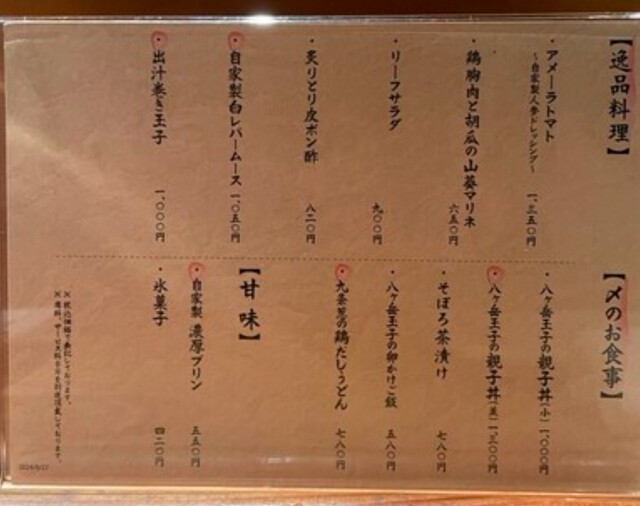 【逸品料理】
・アメーラトマト
〜自家製人参ドレッシング〜
一、三五〇円
・鶏胸肉と胡瓜の山葵マリネ
六五〇円
・リーフサラダ
九〇〇円
・炙りとり皮ポン酢
八二〇円
・自家製白レバームース 一、〇五〇円
・出汁巻き玉子
一、〇〇〇円
【〆のお食事】
・八ヶ岳玉子の親子丼(小)一、〇〇〇円
・八ヶ岳玉子の親子丼(並)一、三〇〇円
・そぼろ茶漬け
七八〇円
・八ヶ岳玉子の卵かけご飯
五八〇円
・九条葱の鶏だしうどん
七八〇円
【甘味】
・自家製 濃厚プリン
五五〇円
・氷菓子
四二〇円
※税込価格で表記しております。